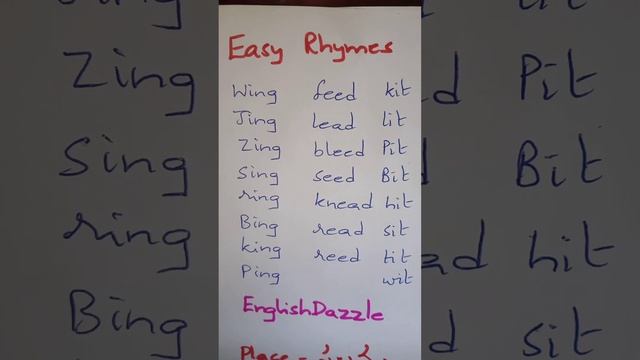 Easy Rhymes
Wing feed kit
Jing lead lit
Zing bleed Pit
Sing seed Bit
ring knead hit
Bing read sit
king reed tit
Ping wit
EnglishDazzle
Zing
Sing
ring
Bing
Pit
Bit
hit
sit